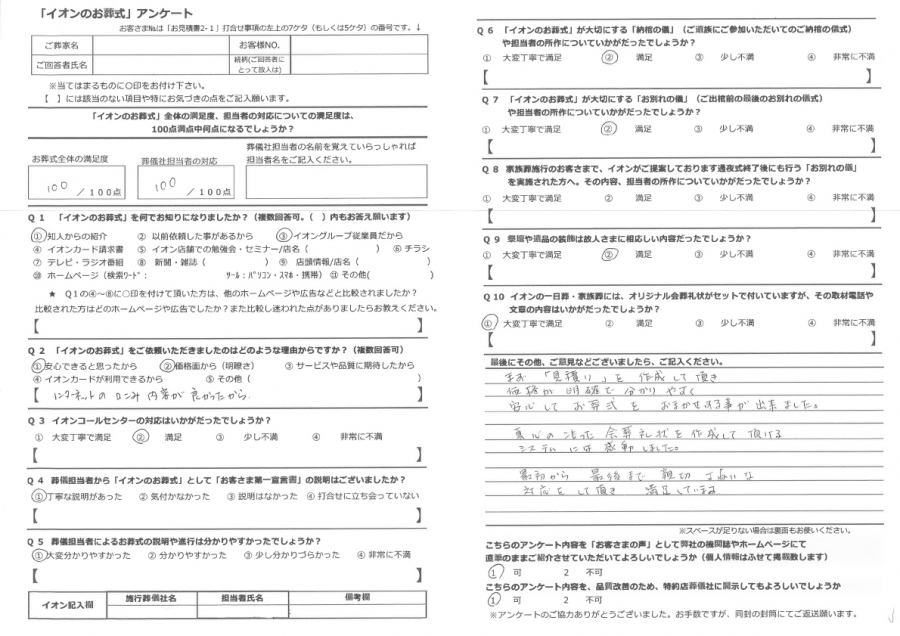 「イオンのお葬式」アンケート
お客さま№は「お見積書2-1」打合せ事項の左上の7ケタ（もしくは5ケタ）の番号です。↓
ご葬家名 お客様NO.
ご回答者氏名 続柄(ご回答者にとって故人は)
※当てはまるものに〇印をお付け下さい。
【　】には該当のない項目や特にお気づきの点をご記入願います。
「イオンのお葬式」全体の満足度、担当者の対応についての満足度は、
100点満点中何点になるでしょうか？
お葬式全体の満足度 葬儀社担当者の対応 葬儀社担当者の名前を覚えていらっしゃれば
担当者名をご記入ください。
100 / 100点 100 / 100点
Q 1 「イオンのお葬式」を何でお知りになりましたか？（複数回答可。（ ）内もお答え願います）
① 知人からの紹介 ② 以前依頼した事があるから ③ イオングループ従業員だから
④ イオンカード請求書 ⑤ イオン店舗での勉強会・セミナー/店名（ ） ⑥ チラシ
⑦ テレビ・ラジオ番組 ⑧ 新聞・雑誌（ ） ⑨ 店頭情報/店名（ ）
⑩ ホームページ（検索ﾜｰﾄﾞ： ﾂｰﾙ：ﾊﾟｿｺﾝ・ｽﾏﾎ・携帯） ⑪ その他( )
★ Q1の④～⑧に〇印を付けて頂いた方は、他のホームページや広告などと比較されましたか？
比較された方はどのホームページや広告でしたか？また比較し迷われた点がありましたらお教えください。
【 】
Q 2 「イオンのお葬式」をご依頼いただきましたのはどのような理由からですか？（複数回答可）
① 安心できると思ったから ② 価格面から（明瞭さ） ③ サービスや品質に期待したから
④ イオンカードが利用できるから ⑤ その他（ ）
【 インターネットの口コミ内容が良かったから 】
Q 3 イオンコールセンターの対応はいかがだったでしょうか？
① 大変丁寧で満足 ② 満足 ③ 少し不満 ④ 非常に不満
【 】
Q 4 葬儀担当者から「イオンのお葬式」として「お客さま第一宣言書」の説明はございましたか？
① 丁寧な説明があった ② 気付かなかった ③ 説明はなかった ④ 打合せに立ち会っていない
【 】
Q 5 葬儀担当者によるお葬式の説明や進行は分かりやすかったでしょうか？
① 大変分かりやすかった ② 分かりやすかった ③ 少し分かりづらかった ④ 非常に不満
【 】
イオン記入欄 施行葬儀社名 担当者氏名 備考欄
Q 6 「イオンのお葬式」が大切にする「納棺の儀」（ご遺族にご参加いただいてのご納棺の儀式）
や担当者の所作についていかがだったでしょうか？
① 大変丁寧で満足 ② 満足 ③ 少し不満 ④ 非常に不満
【 】
Q 7 「イオンのお葬式」が大切にする「お別れの儀」（ご出棺前の最後のお別れの儀式）
や担当者の所作についていかがだったでしょうか？
① 大変丁寧で満足 ② 満足 ③ 少し不満 ④ 非常に不満
【 】
Q 8 家族葬施行のお客さまで、イオンがご提案しております通夜式終了後にも行う「お別れの儀」
を実施された方へ。その内容、担当者の所作についていかがだったでしょうか？
① 大変丁寧で満足 ② 満足 ③ 少し不満 ④ 非常に不満
【 】
Q 9 祭壇や遺品の装飾は故人さまに相応しい内容だったでしょうか？
① 大変丁寧で満足 ② 満足 ③ 少し不満 ④ 非常に不満
【 】
Q 10 イオンの一日葬・家族葬には、オリジナル会葬礼状がセットで付いていますが、その取材電話や
文章の内容はいかがだったでしょうか？
① 大変丁寧で満足 ② 満足 ③ 少し不満 ④ 非常に不満
【 】
最後にその他、ご意見などございましたら、ご記入ください。
まず「見積り」を作成して頂き
価格が明確で分かりやすく
安心してお葬式をおまかせする事が出来ました。
真心のこもった会葬礼状を作成して頂ける
システムには感動しました。
最初から最後まで親切ていねいな
対応をして頂き満足しています
※スペースが足りない場合は裏面もお使いください。
こちらのアンケート内容を「お客さまの声」として弊社の機関誌やホームページにて
直筆のままご紹介させていただいてよろしいでしょうか（個人情報はふせて掲載致します）
1 可 2 不可
こちらのアンケート内容を、品質改善のため、特約店葬儀社に開示してもよろしいでしょうか
1 可 2 不可
※アンケートのご協力ありがとうございました。お手数ですが、同封の封筒にてご返送願います。